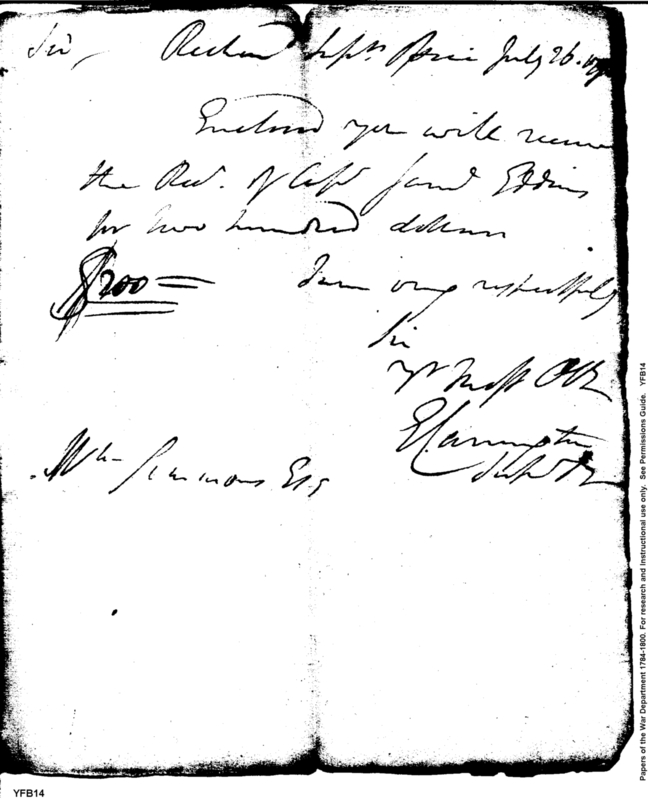 Sir, Richmd Supvrs Office July 26. 
Enclosed you will receive
the Rect. of Capt Saml Eddins
for two hundred dollars
$200=
I am very respectfully
Sir
yr Most Obt
E Carrington
Supvr
Wm Simmons Esqr
YFB14
Papers of the War Department 1784-1800. For research and Instructional use only. See Permissions Guide. YFB14